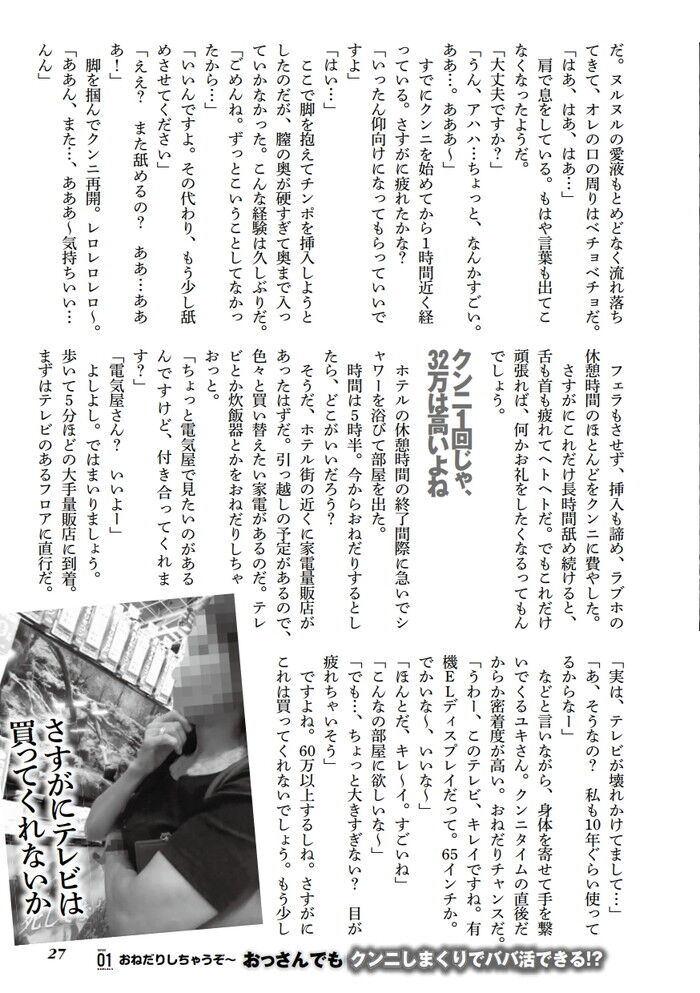 だ。ヌルヌルの愛液もとめどなく流れ落ち
てきて、オレの口の周りはベチョベチョだ。
「はあ、はあ、はあ…」
肩で息をしている。もはや言葉も出てこ
なくなったようだ。
「大丈夫ですか？」
「うん、アハハ…ちょっと、なんかすごい。
ああ…。あああ～」
すでにクンニを始めてから1時間近く経
っている。さすがに疲れたかな？
「いったん仰向けになってもらっていいで
すよ」
「はい…」
ここで脚を抱えてチンポを挿入しようと
したのだが、膣の奥が硬すぎて奥まで入っ
ていかなかった。こんな経験は久しぶりだ。
「ごめんね。ずっとこういうことしてなかっ
たから…」
「いいんですよ。その代わり、もう少し舐
めさせてください」
「ええ？　また舐めるの？　ああ…ああ
あ！」
脚を掴んでクンニ再開。レロレロレロ～。
「ああん、また…、あああ～気持ちいい…
んん」
フェラもさせず、挿入も諦め、ラブホの
休憩時間のほとんどをクンニに費やした。
さすがにこれだけ長時間舐め続けると、
舌も首も疲れてヘトヘトだ。でもこれだけ
頑張れば、何かお礼をしたくなるってもん
でしょう。
クンニ1回じゃ、
32万は高いよね
ホテルの休憩時間の終了間際に急いでシ
ャワーを浴びて部屋を出た。
時間は5時半。今からおねだりするとし
たら、どこがいいだろう？
そうだ、ホテル街の近くに家電量販店が
あったはずだ。引っ越しの予定があるので、
色々と買い替えたい家電があるのだ。テレ
ビとか炊飯器とかをおねだりしちゃ
おっと。
「ちょっと電気屋で見たいのがある
んですけど、付き合ってくれま
す？」
「電気屋さん？　いいよー」
よしよし。ではまいりましょう。
歩いて5分ほどの大手量販店に到着。
まずはテレビのあるフロアに直行だ。
「実は、テレビが壊れかけてまして…」
「あ、そうなの？　私も10年ぐらい使って
るからなー」
などと言いながら、身体を寄せて手を繋
いでくるユキさん。クンニタイムの直後だ
からか密着度が高い。おねだりチャンスだ。
「うわー、このテレビ、キレイですね。有
機ELディスプレイだって。65インチか。
でかいな～、いいな～」
「ほんとだ、キレ～イ。すごいね」
「こんなの部屋に欲しいな～」
「でも…、ちょっと大きすぎない？　目が
疲れちゃいそう」
ですよね。60万以上するしね。さすがに
これは買ってくれないでしょう。もう少し
さすがにテレビは
買ってくれないか
27
01 おねだりしちゃうぞ～ おっさんでもクンニしまくりでパパ活できる!?